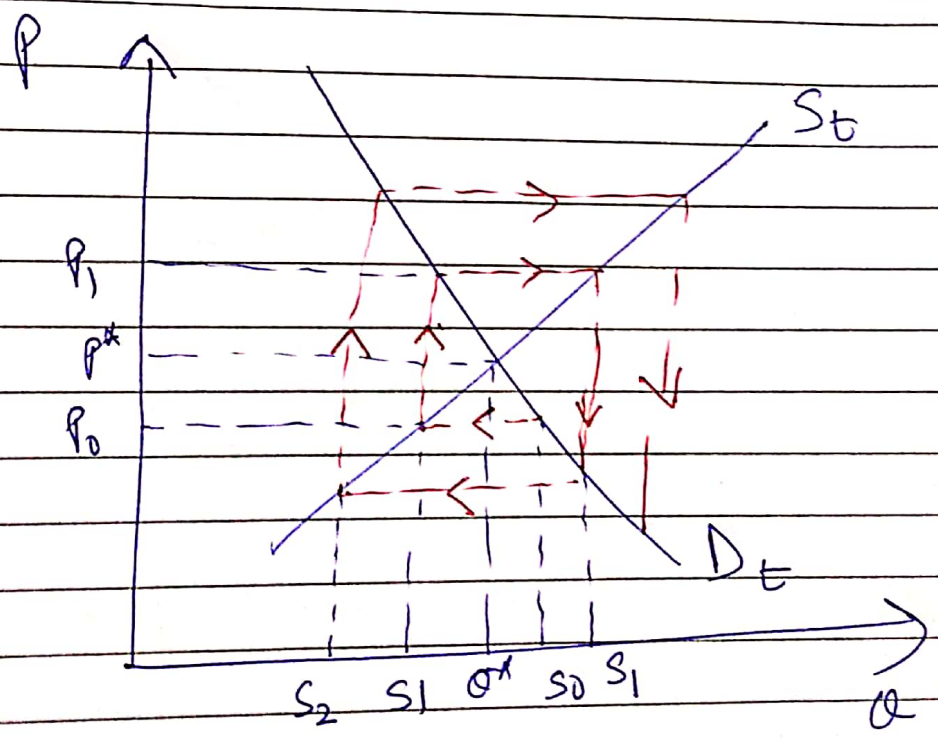 P
St
P1
P*
P0
Dt
S2 S1 Q* S0 S1
Q